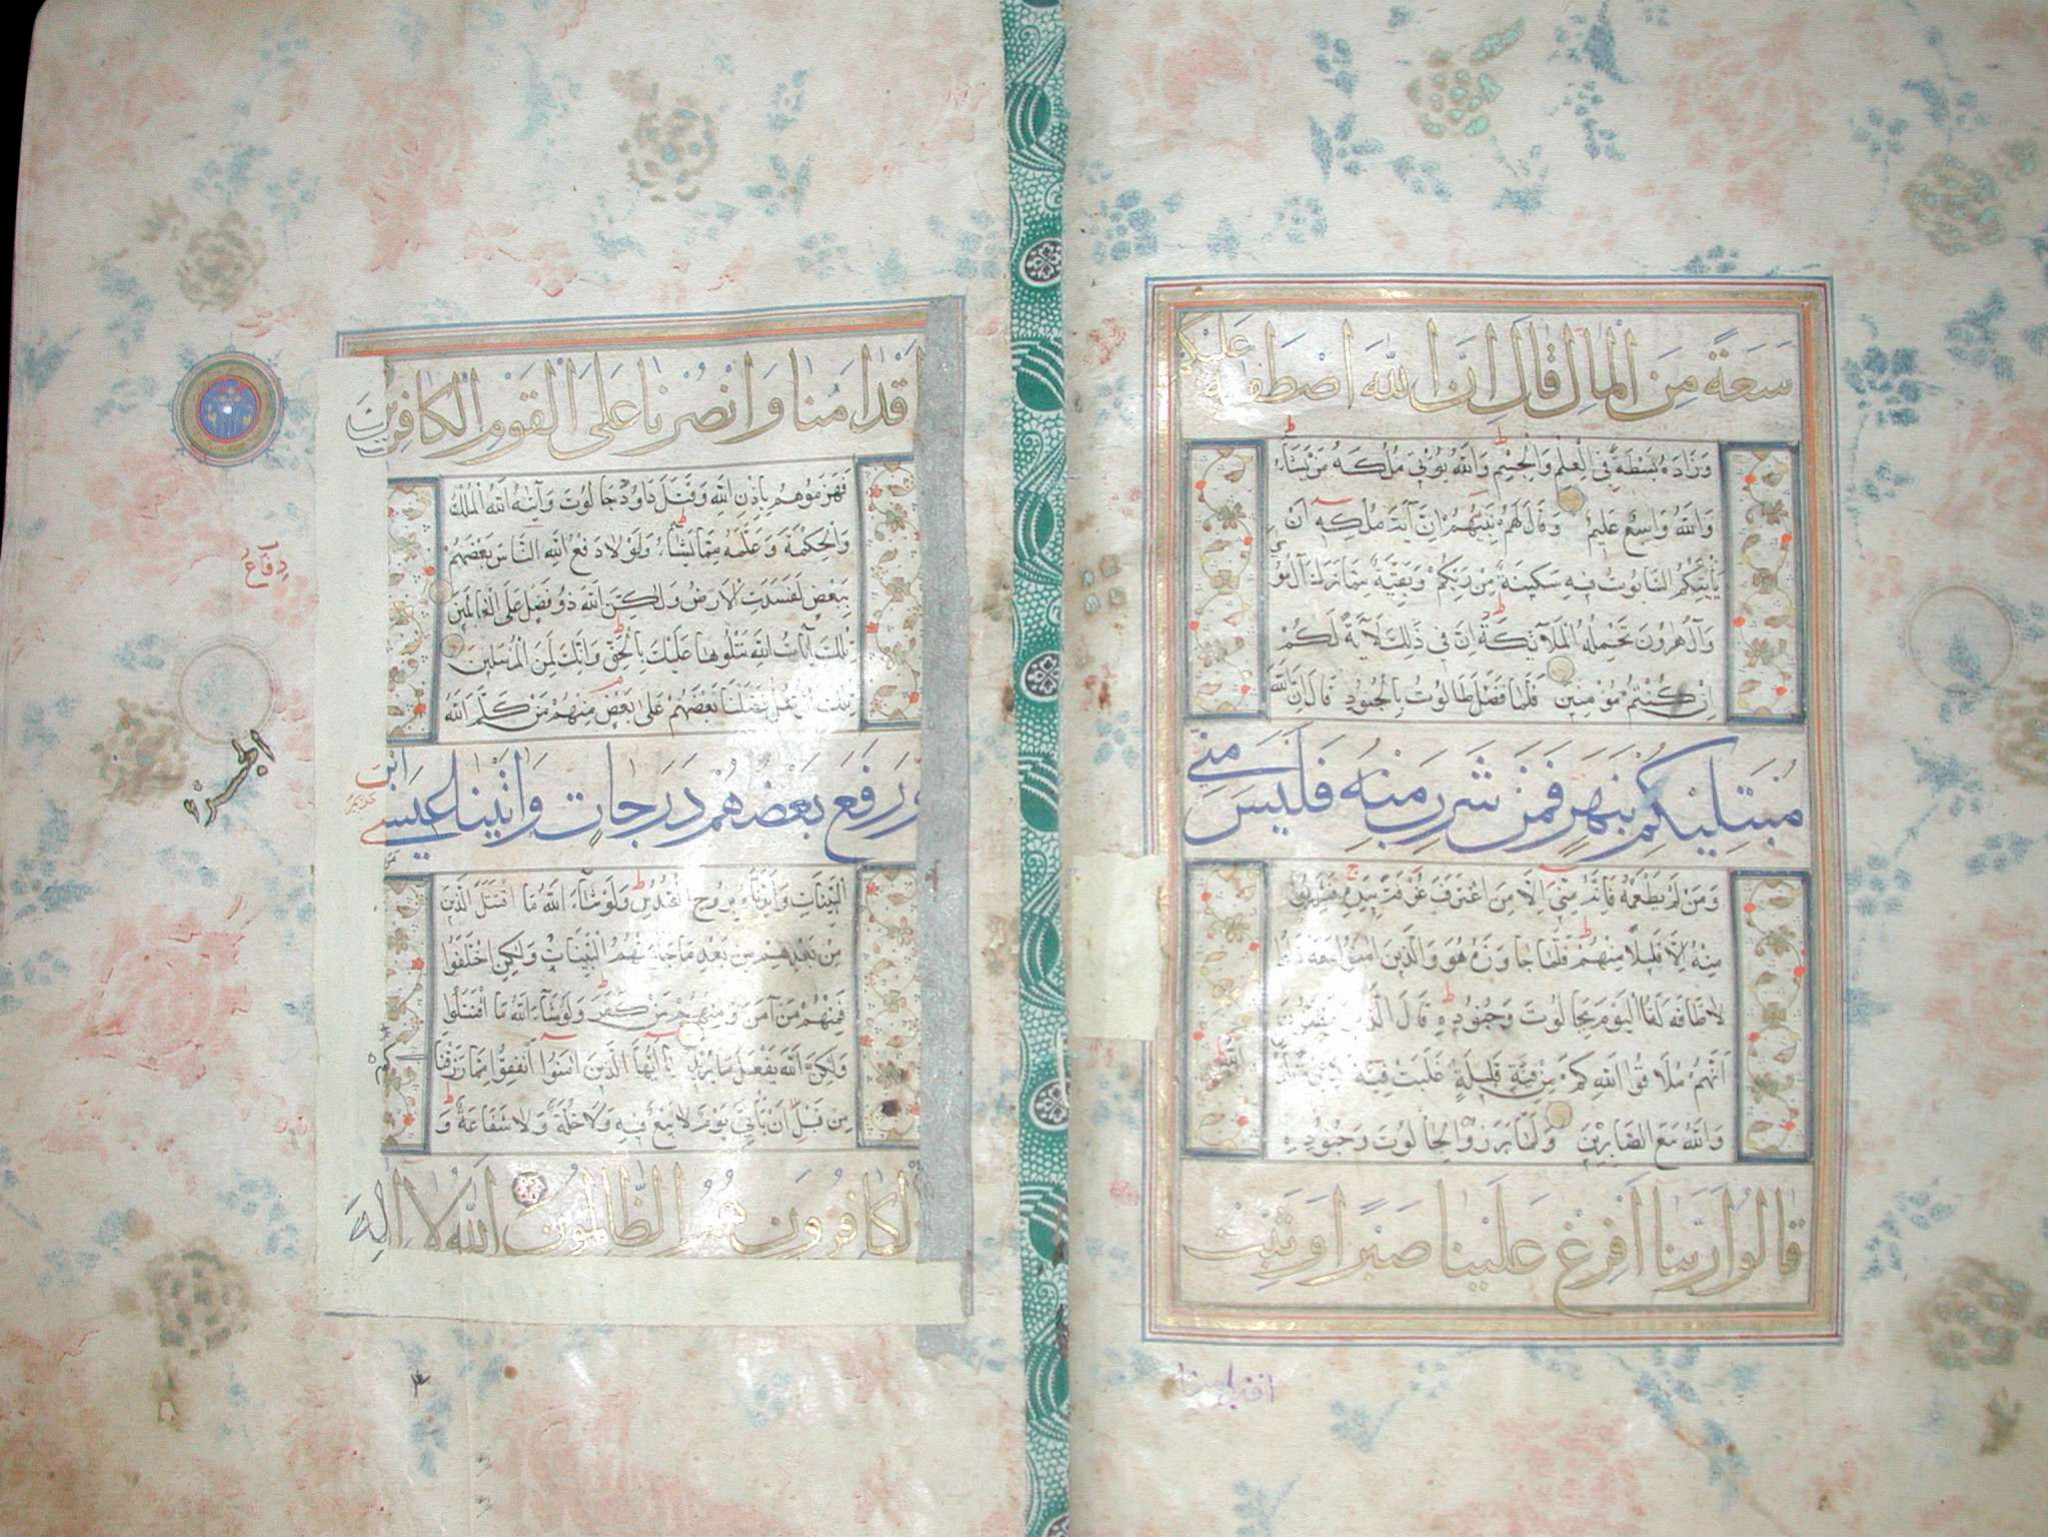 سَعَةً مِنَ الْمَالِ قَالَ اِنَّ اللهَ اصْطَفٰيهُ عَلَيْكُمْ
وَزَادَهُ بَسْطَةً فِي الْعِلْمِ وَالْجِسْمِ وَاللهُ يُؤْتِي مُلْكَهُ مَنْ يَشَاءُ
وَاللهُ وَاسِعٌ عَلِيمٌ وَقَالَ لَهُمْ نَبِيُّهُمْ اِنَّ آيَةَ مُلْكِهِ اَنْ
يَأْتِيَكُمُ التَّابُوتُ فِيهِ سَكِينَةٌ مِنْ رَبِّكُمْ وَبَقِيَّةٌ مِمَّا تَرَكَ آلُ مُوسٰى
وَآلُ هٰرُونَ تَحْمِلُهُ الْمَلَآئِكَةُ اِنَّ فِي ذٰلِكَ لَآيَةً لَكُمْ
اِنْ كُنْتُمْ مُؤْمِنِينَ فَلَمَّا فَصَلَ طَالُوتُ بِالْجُنُودِ قَالَ اِنَّ اللهَ
مُبْتَلِيكُمْ بِنَهَرٍ فَمَنْ شَرِبَ مِنْهُ فَلَيْسَ مِنِّي
وَمَنْ لَمْ يَطْعَمْهُ فَاِنَّهُ مِنِّي اِلَّا مَنِ اغْتَرَفَ غُرْفَةً بِيَدِهِ فَشَرِبُوا
مِنْهُ اِلَّا قَلِيلًا مِنْهُمْ فَلَمَّا جَاوَزَهُ هُوَ وَالَّذِينَ اٰمَنُوا مَعَهُ قَالُوا
لَا طَاقَةَ لَنَا الْيَوْمَ بِجَالُوتَ وَجُنُودِهِ قَالَ الَّذِينَ يَظُنُّونَ
اَنَّهُمْ مُلَاقُوا اللهِ كَمْ مِنْ فِئَةٍ قَلِيلَةٍ غَلَبَتْ فِئَةً
وَاللهُ مَعَ الصَّابِرِينَ وَلَمَّا بَرَزُوا لِجَالُوتَ وَجُنُودِهِ
قَالُوا رَبَّنَا اَفْرِغْ عَلَيْنَا صَبْرًا وَثَبِّتْ
اَقْدَامَنَا وَانْصُرْنَا عَلَى الْقَوْمِ الْكَافِرِينَ
فَهَزَمُوهُمْ بِاِذْنِ اللهِ وَقَتَلَ دَاوُدُ جَالُوتَ وَآتٰيهُ اللهُ الْمُلْكَ
وَالْحِكْمَةَ وَعَلَّمَهُ مِمَّا يَشَاءُ وَلَوْلَا دَفْعُ اللهِ النَّاسَ بَعْضَهُمْ
بِبَعْضٍ لَفَسَدَتِ الْاَرْضُ وَلٰكِنَّ اللهَ ذُو فَضْلٍ عَلَى الْعَالَمِينَ
تِلْكَ اٰيَاتُ اللهِ نَتْلُوهَا عَلَيْكَ بِالْحَقِّ وَاِنَّكَ لَمِنَ الْمُرْسَلِينَ
تِلْكَ الرُّسُلُ فَضَّلْنَا بَعْضَهُمْ عَلٰى بَعْضٍ مِنْهُمْ مَنْ كَلَّمَ اللهُ
وَرَفَعَ بَعْضَهُمْ دَرَجَاتٍ وَاٰتَيْنَا عِيسَى ابْنَ
الْبَيِّنَاتِ وَاَيَّدْنَاهُ بِرُوحِ الْقُدُسِ وَلَوْ شَاءَ اللهُ مَا اقْتَتَلَ الَّذِينَ
مِنْ بَعْدِهِمْ مِنْ بَعْدِ مَا جَاءَتْهُمُ الْبَيِّنَاتُ وَلٰكِنِ اخْتَلَفُوا
فَمِنْهُمْ مَنْ آمَنَ وَمِنْهُمْ مَنْ كَفَرَ وَلَوْ شَاءَ اللهُ مَا اقْتَتَلُوا
وَلٰكِنَّ اللهَ يَفْعَلُ مَا يُرِيدُ يَا اَيُّهَا الَّذِينَ اٰمَنُوا اَنْفِقُوا مِمَّا رَزَقْنَا
كُمْ
مِنْ قَبْلِ اَنْ يَأْتِيَ يَوْمٌ لَا بَيْعٌ فِيهِ وَلَا خُلَّةٌ وَلَا شَفَاعَةٌ وَ
الْكَافِرُونَ هُمُ الظَّالِمُونَ اَللهُ لَا اِلٰهَ
دِفَاعُ
الجزء